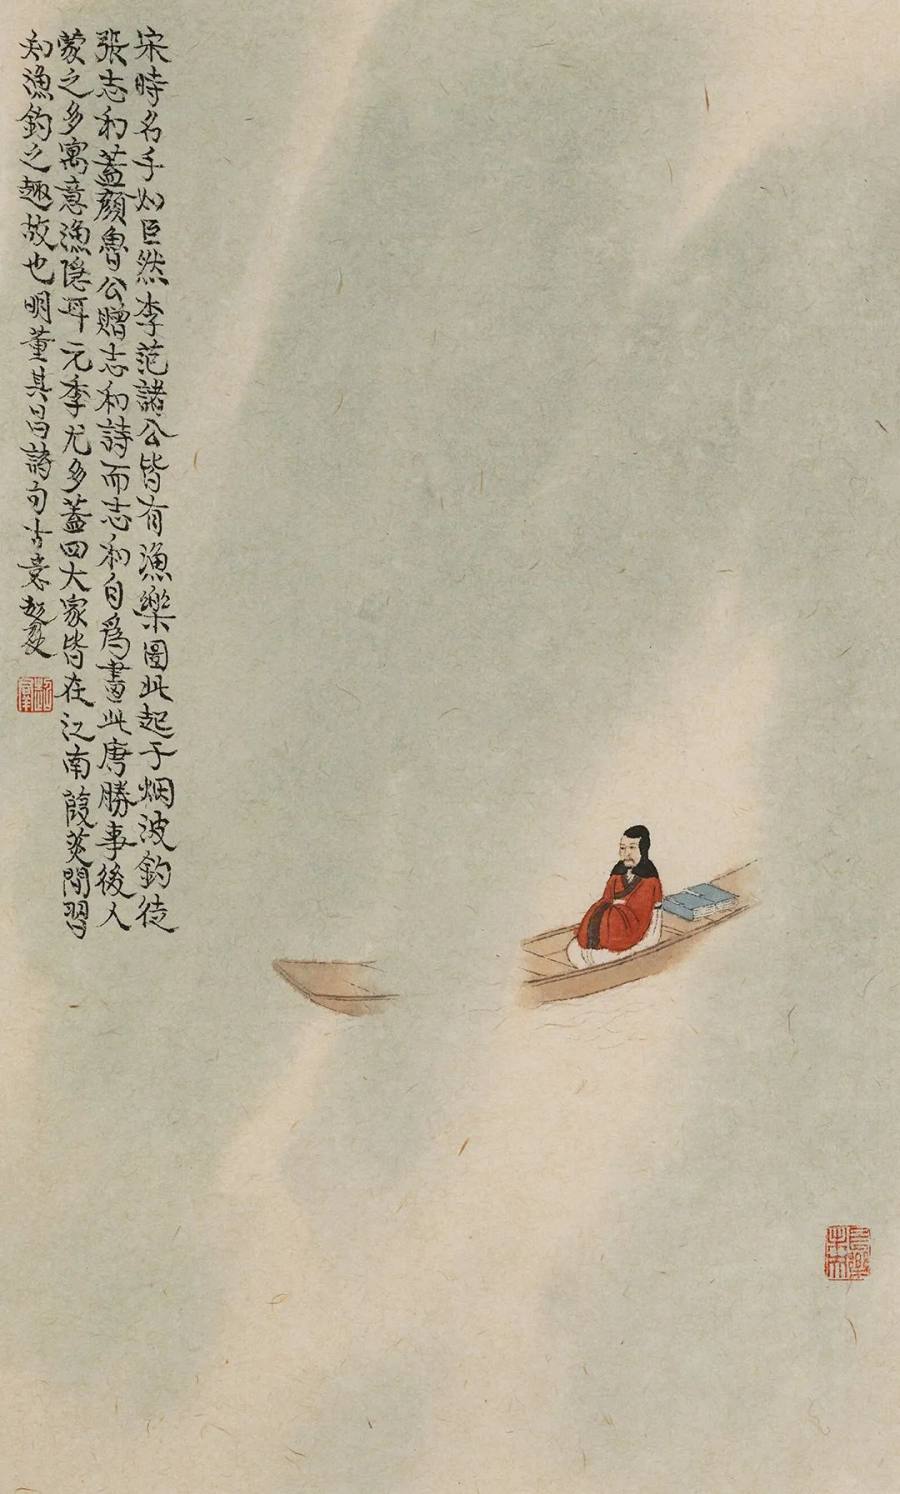 宋時名手如巨然李范諸公皆有漁樂圖此起于烟波釣徒
張志和蓋顏魯公贈志和詩而志和自爲畫此唐勝事後人
蒙之多寓意漁隱耳元季尤多蓋四大家皆在江南葭菼間習
知漁釣之趣故也明董其昌詩句古意